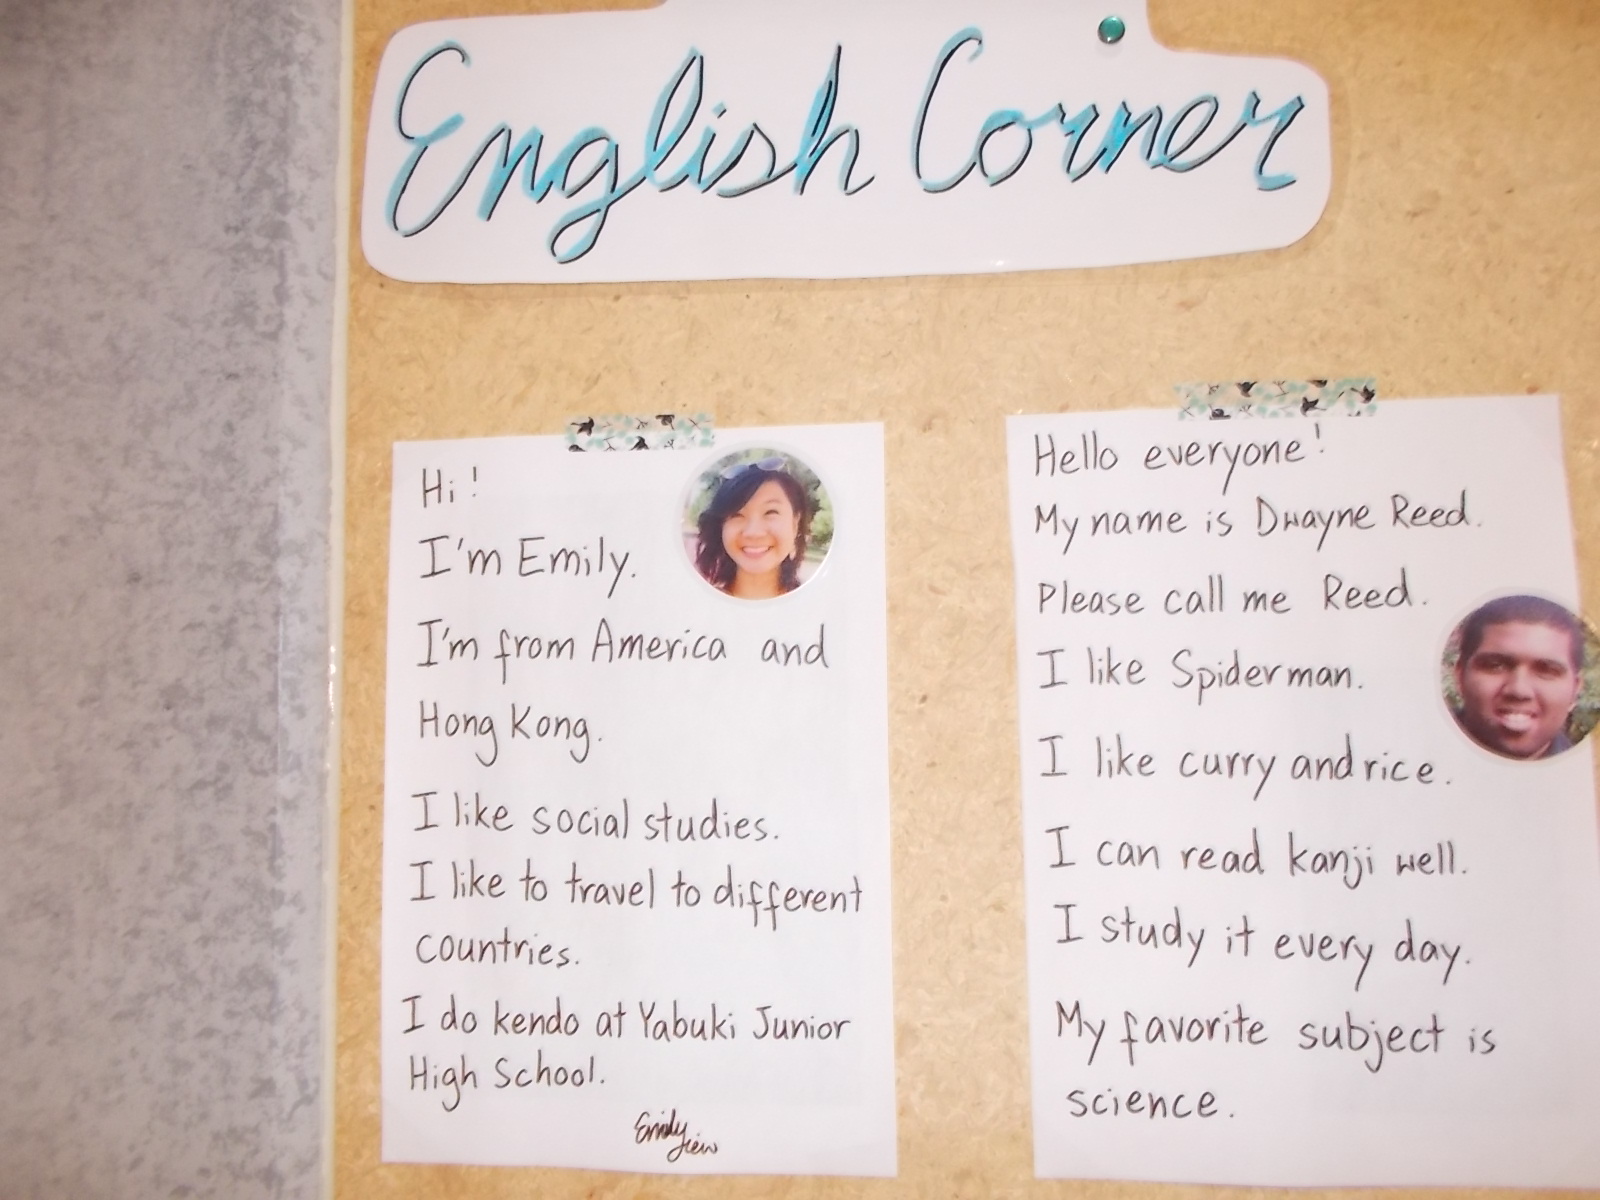 English Corner
Hi!
I'm Emily.
I'm from America and
Hong Kong.
I like social studies.
I like to travel to different
countries.
I do kendo at Yabuki Junior
High School.
Emily
Hello everyone!
My name is Dwayne Reed.
Please call me Reed.
I like Spiderman.
I like curry and rice.
I can read kanji well.
I study it every day.
My favorite subject is
science.